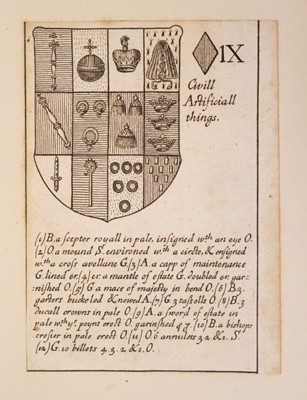 IX
Civill
Artificiall
things.
(1) B. a scepter royall in pale, insigned wth an eye O.
(2) O. a mound S. environed wth a circle, & ensigned
wth a cross avellane G. (3) A. a capp of maintenance
G. lined er. (4) er. a mantle of estate G. doubled er. gar:
nished O. (5) G. a mace of majesty in bend O. (6) B. 3.
garters buckeled & nowed A. (7) G. 3 tassells O. (8) B. 3
ducall crowns in pale O. (9) A. a sword of estate in
pale wth ye poynt erect O. garnished g. (10) B. a bishops
crosier in pale erect O. (11) O. 6 annulets 3. 2. & 1. S.
(12) G. 10 billets 4. 3. 2. & 1. O.